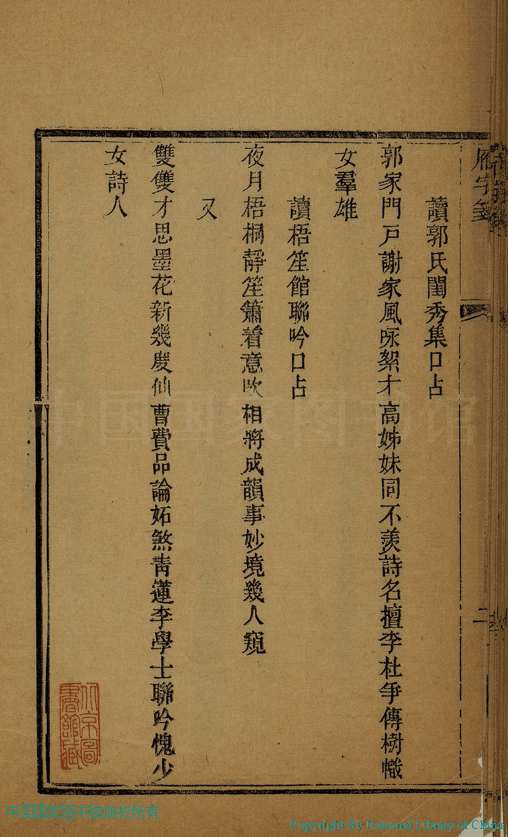 讀郭氏閨秀集口占
郭家門戶謝家風咏絮才高姊妹同不羨詩名擅李杜爭傳樹幟
女羣雄
讀梧笙館聯吟口占
夜月梧桐靜笙簫着意吹相將成韻事妙境幾人窺
又
雙雙才思墨花新幾度仙曹費品論妬煞青蓮李學士聯吟愧少
女詩人
北京圖書館藏
中国国家图书馆
Copyright By National Library of China